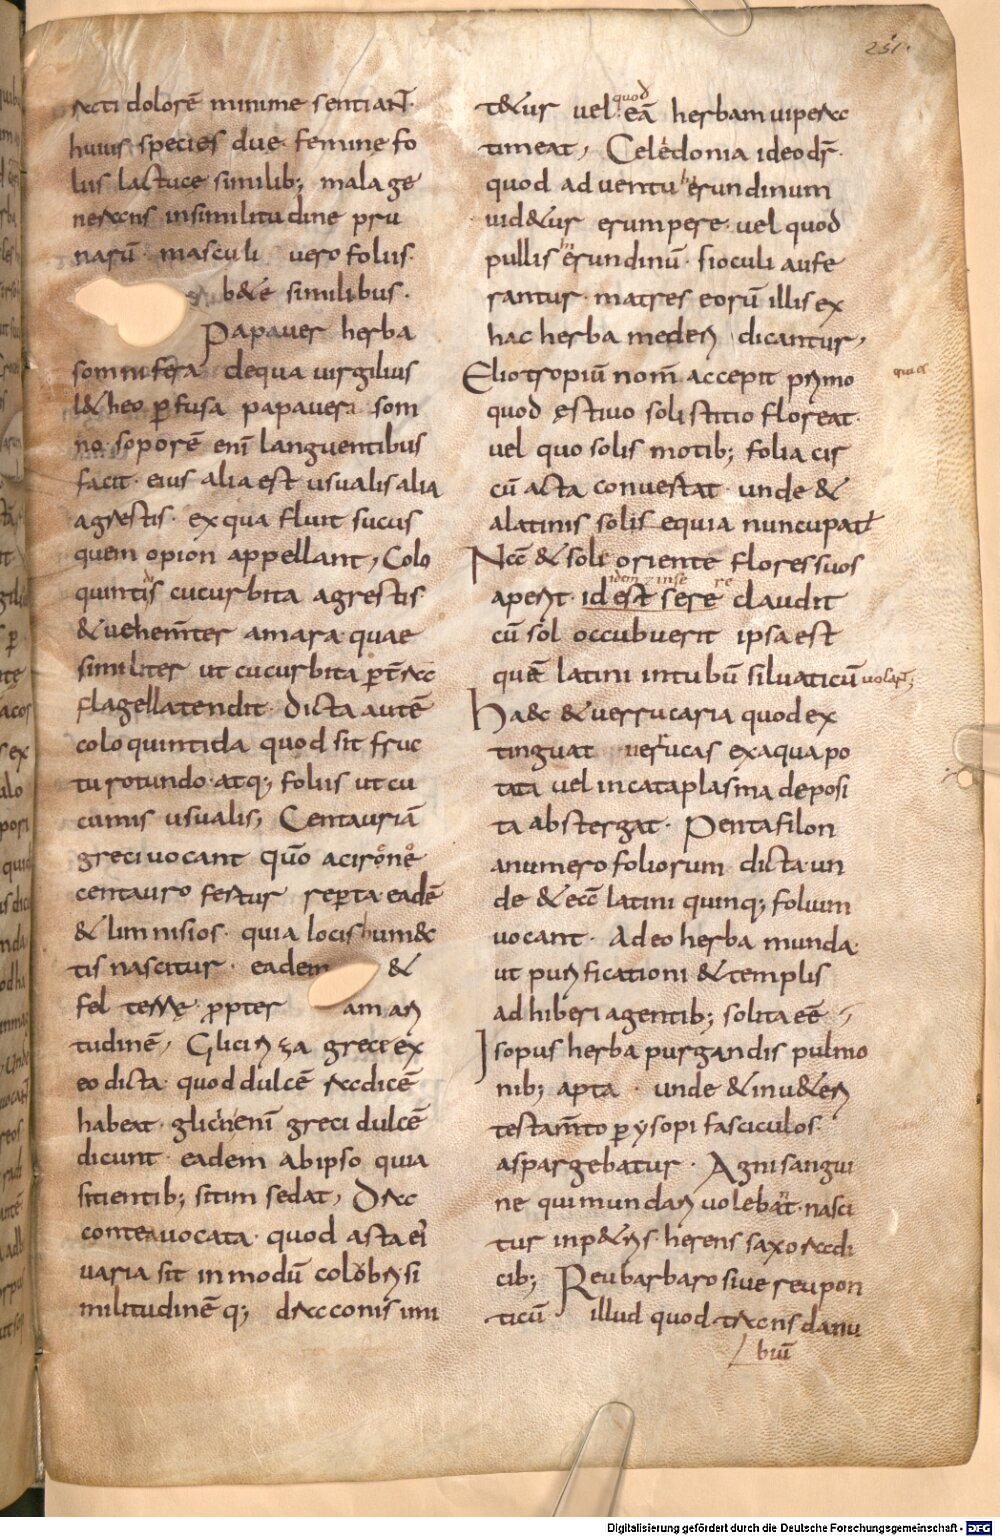 231.
recti dolorē minime sentiant.
huius species due femine fo
liis lactuce similib; mala ge
nerans insimilitudine pru
narū masculi vero foliis
b&e similibus.
Papauer herba
somnifera dequa uirgilius
l&heo ꝑfusa papauera som
no soporē enī languentibus
facit eius alia est usualis alia
agrestis. exqua fluit sucus
quem opion appellant, Colo
quintis cucurbita agrestis
& uehem̄ter amara quae
similiter ut cucurbita ꝑ t̄rā
flagella tendit. Dicta autē
coloquintida quod sit fruc
tu rotundo atq; foliis ut cu
cumis usualis, Centauriā
greci uocant quō a cirone
centauro fertur reperta eadē
& limnisios. quia locis humec
tis nascitur. eadem &
fel terrę ꝓpter amari
tudinē, Gliciriza grece ex
eo dicta quod dulcē radicē
habeat. glicen enī greci dulcē
dicunt. eadem ab ipso quia
sitientib; sitim sedat, Drac
contea uocata quod asta ei
uaria sit in modū colobri si
militudinē q; dracconis imi
t&ur vel quod eā herbam uipera
timeat, Celedonia ideo dr̄.
quod aduentu herundinum
uid&ur erumpere. uel quod
pullis herundinū. si oculi aufe
rantur. matres eorū illis ex
hac herba mederi dicantur,
Eliotropiū nom̄ accepit primo
quod ęstiuo solistitio floreat.
vel quo solis motib; folia cir
cū acta conuertat. unde &
a latinis solis equia nuncupatur
Nā & sole oriente flores suos
aperit. id est sere claudit
cū sol occubuerit ipsa est
quē latini intubū siluaticū uocant;
Haec & uerrucaria quod ex
tinguat uerrucas ex aqua po
tata uel in cataplasma deposi
ta abstergat. Pentafilon
a numero foliorum dicta un
de & eā latini quinq; folium
uocant. Adeo herba munda
ut purificationi & templis
adhiberi a gentib; solita eē
Isopus herba purgandis pulmo
nib; apta. unde & in u&eri
testam̄to ꝑ ysopi fasciculos
aspargebatur. Agni sangui
ne qui mundari uolebant. nasci
tur in p&ris. herens saxo radi
cib; Reubarbaro siue reu pon
ticū illud quod trans danu
biū
Digitalisierung gefördert durch die Deutsche Forschungsgemeinschaft - DFG